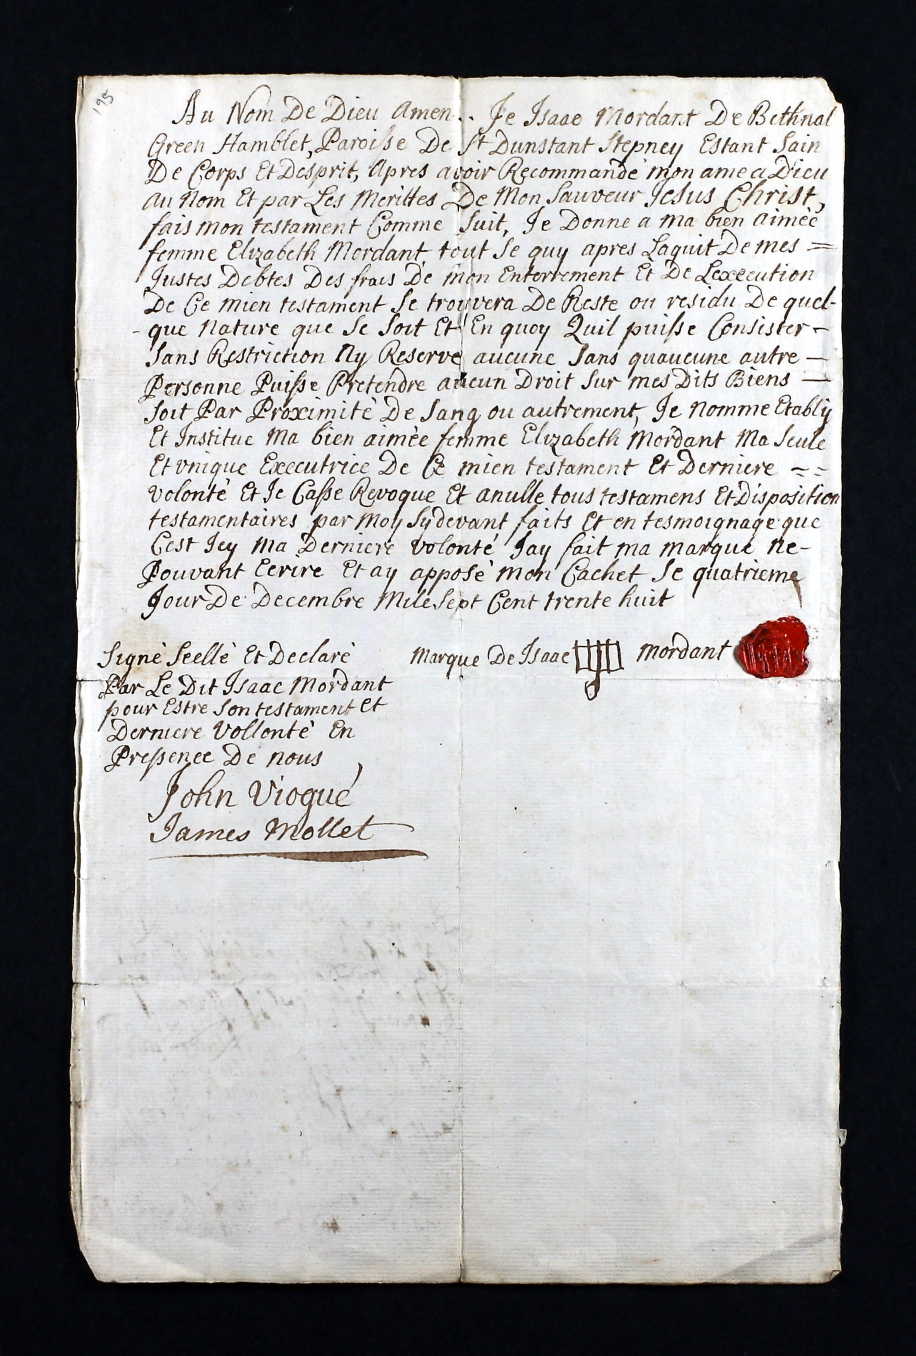 195
Au Nom De Dieu Amen.. Je Isaac Mordant De Bethnal
Green Hamblet, Paroisse De St Dunstant Stepney Estant Sain
De Corps Et Desprit, Apres avoir Recommandé mon ame a Dieu
Au Nom Et par Les Merittes De Mon Sauveur Jesus Christ,
fais mon testament Comme Suit, Je Donne a ma bien aimée
femme Elizabeth Mordant, tout Se quy apres Laquit De mes =
Justes Debtes Des frais De mon Enterrement Et De Lexecution
De Ce mien testament Se trouvera De Reste ou residu De quel-
-que Nature que Se Soit Et En quoy Quil puisse Consister -
Sans Restriction Ny Reserve aucune Sans quaucune autre —
Personne Puisse Pretendre aucun Droit Sur mes Dits Biens —
Soit Par Proximité De Sang ou autrement, Je Nomme Etably
Et Institue Ma bien aimée femme Elizabeth Mordant Ma Seule
Et Unique Executrice De Ce mien testament Et Derniere ==
Volonté Et Je Casse Revoque Et anulle tous testamens Et Disposition
testamentaires par Moy Sydevant faits Et en tesmoignage que
Cest Icy Ma Derniere Volonté Jay fait ma marque Ne-
Pouvant Ecrire Et ay apposé Mon Cachet Se quatrieme
Jour De Decembre Mile Sept Cent trente huit
Signé Seellé Et Declaré
Par Le Dit Isaac Mordant
pour Estre Son testament Et
Derniere Vollonté En
Pressence De nous
Marque De Isaac Mordant
John Vioqué
James Mollet